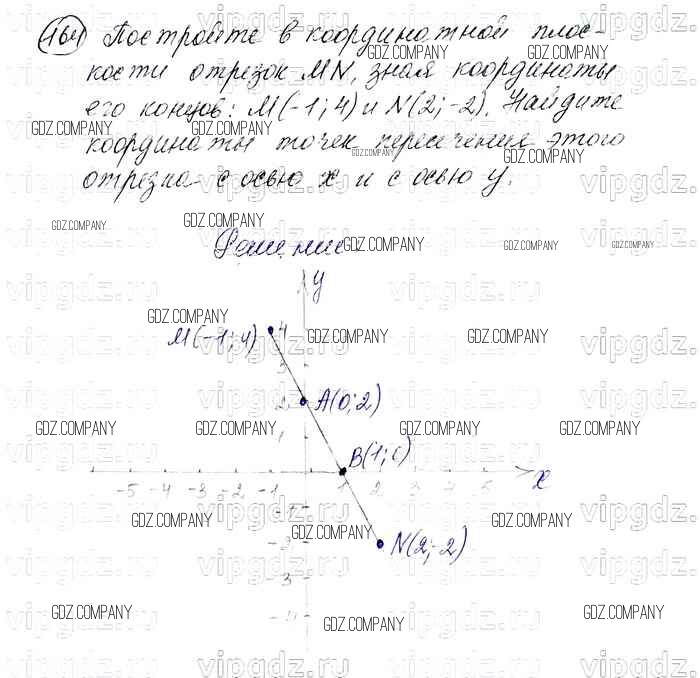 164 Постройте в координатной плос-
кости отрезок MN, зная координаты
его концов: M(-1; 4) и N(2; -2). Найдите
координаты точек пересечения этого
отрезка с осью x и с осью y.
Решение
y
M(-1; 4) 4
3
2 A(0; 2)
1
B(1; 0)
-5 -4 -3 -2 -1 1 2 3 4 5 x
-1
-2 N(2; -2)
-3
-4
GDZ.COMPANY
vipgdz.ru